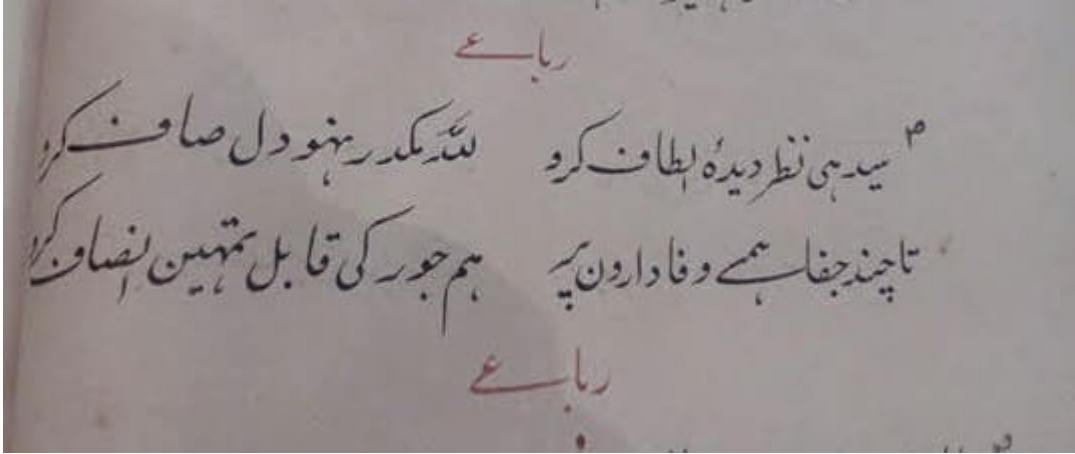 رباعے
سیدہی نظر دیدۂ الطاف کرو للہ مکدر نہو دل صاف کرو
تا چند جفا ہمسے وفادارون پر ہم جور کی قابل تمہین انصاف کرو
رباعے